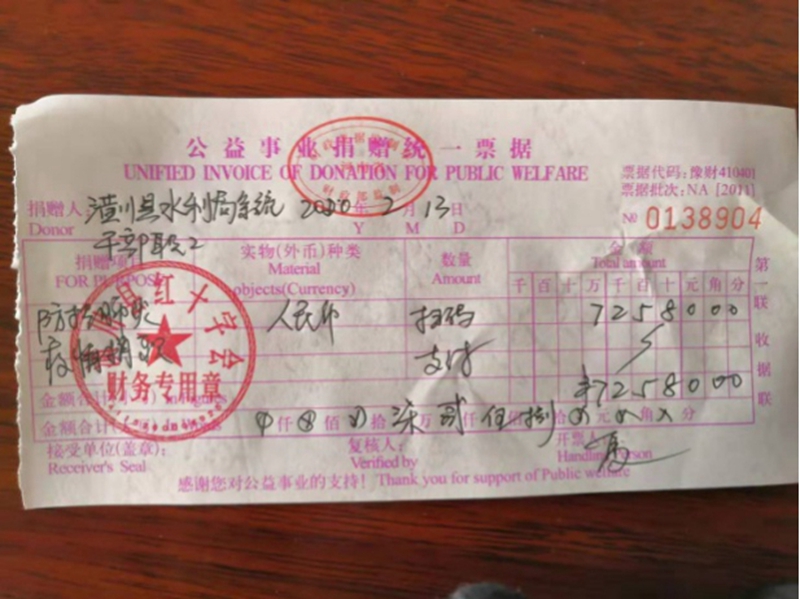 公益事业捐赠统一票据
UNIFIED INVOICE OF DONATION FOR PUBLIC WELFARE
票据代码:豫财410401
票据批次:NA [2011]
捐赠人 潢川县水利局系统 2020年2月13日
Donor Y M D
№ 0138904
干部职工
捐赠项目 实物(外币)种类 数量 金额
FOR PURPOSE Material Amount Total amount
objects(Currency) 千百十万千百十元角分
防控肺炎 人民币 扫码 7258000
疫情捐款 支付
红十字会
财务专用章
金额合计(小写)In Figures ¥7258000
金额合计 仟 佰 拾柒万贰仟伍佰捌拾 元 角 分
接受单位(盖章): 复核人: 开票人
Receiver's Seal Verified by Handling Person
感谢您对公益事业的支持! Thank you for support of Public welfare
第一联 收据联